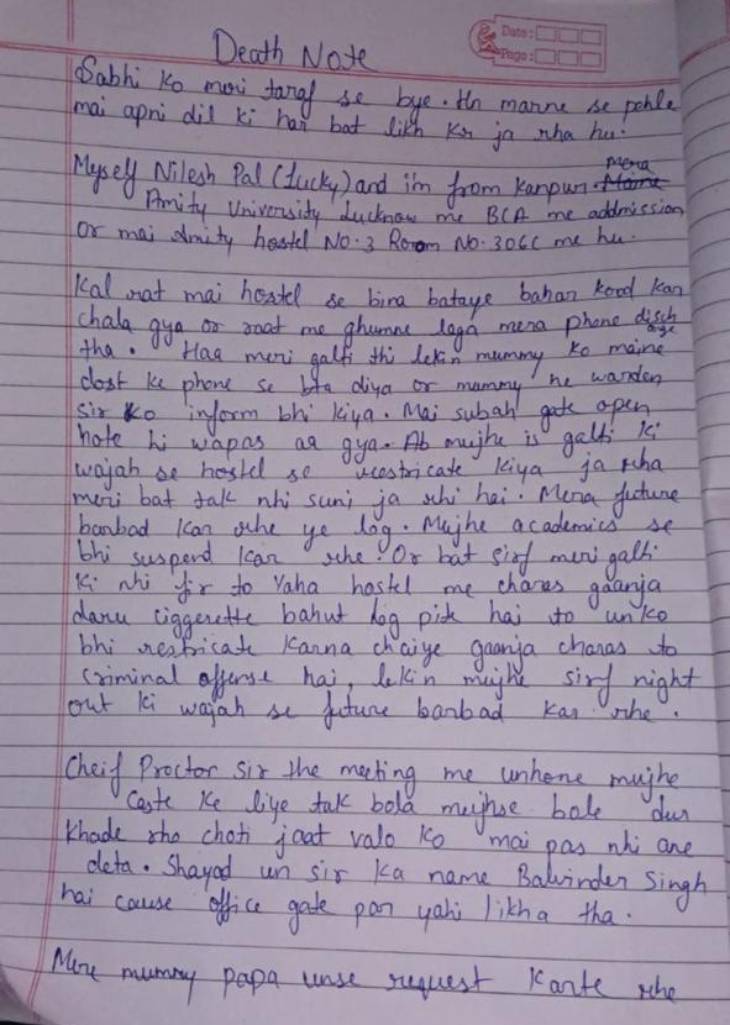 Date:
Page:
Death Note
Sabhi ko meri taraf se bye. Hn marne se pehle
mai apni dil ki har bat likh kr ja rha hu.
Myself Nilesh Pal (Lucky) and i'm from Kanpur. Mera
Amity University Lucknow me BCA me addmission
or mai Amity hostel No.3 Room No.306C me hu.
Kal rat mai hostel se bina bataye bahar kood kar
chala gya or raat me ghumne laga mera phone disch
arge
tha. Haa meri galti thi lekin mummy ko maine
dost ke phone se bta diya or mummy ne warden
sir ko inform bhi kiya. Mai subah gate open
hote hi wapas aa gya. Ab mujhe is galti ki
wajah se hostel se restricate kiya ja rha
meri bat tak nhi suni ja rhi hai. Mera future
barbad kar rhe ye log. Mujhe academics se
bhi suspend kar rhe. Or bat sirf meri galti
ki nhi fir to Yaha hostel me charas gaanja
daru ciggerette bahut log pite hai to unko
bhi restricate karna chaiye gaanja charas to
criminal offense hai, lekin mujhe sirf night
out ki wajah se future barbad kar rhe.
Cheif Proctor sir the meeting me unhone mujhe
Caste ke liye tak bola mujhse bole dur
khade rho choti jaat valo ko mai pas nhi ane
deta. Shayad un sir ka name Balvinder Singh
hai cause office gate par yahi likha tha.
Mere mummy papa unse request karte rhe